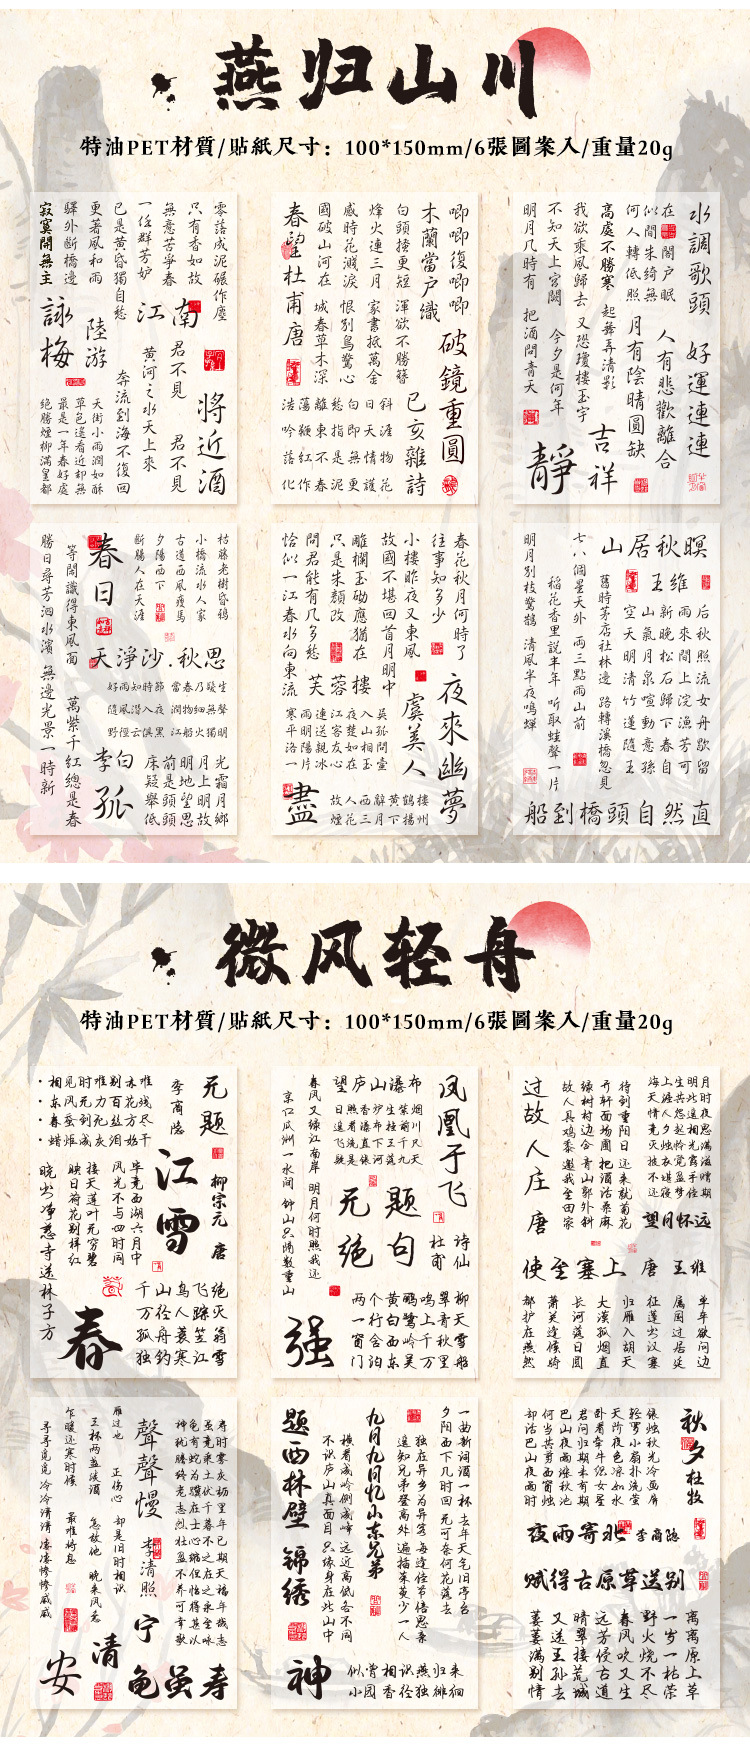 燕归山川
特油PET材質/貼紙尺寸：100*150mm/6張圖案入/重量20g
零落成泥碾作塵
只有香如故
無意苦爭春
一任群芳妒
已是黃昏獨自愁
更著風和雨
驛外斷橋邊
寂寞開無主
詠梅
陸游
江南
將近酒
君不見
黃河之水天上來
奔流到海不復回
君不見
天街小雨潤如酥
草色遙看近却無
最是一年春好處
絕勝煙柳滿皇都
唧唧復唧唧
木蘭當戶織
白頭搔更短 渾欲不勝簪
烽火連三月 家書抵萬金
感時花濺淚 恨別鳥驚心
國破山河在 城春草木深
春望杜甫唐
破鏡重圓
己亥雜詩
浩蕩離愁白日斜
吟鞭東指即天涯
落紅不是無情物
化作春泥更護花
水調歌頭
好運連連
人有悲歡離合
月有陰晴圓缺
何人轉低照
高處不勝寒 起舞弄清影
我欲乘風歸去 又恐瓊樓玉宇
不知天上宮闕 今夕是何年
明月几時有 把酒問青天
吉祥
靜
枯藤老樹昏鴉
小橋流水人家
古道西風瘦馬
夕陽西下
斷腸人在天涯
春日
等閒識得東風面 萬紫千紅總是春
勝日尋芳泗水濱 無邊光景一時新
天淨沙.秋思
好雨知時節 當春乃發生
隨風潛入夜 潤物細無聲
野徑云俱黑 江船火獨明
李白
孤
床前明月光
疑是地上霜
舉頭望明月
低頭思故鄉
春花秋月何時了
往事知多少
小樓昨夜又東風
故國不堪回首月明中
雕欄玉砌應猶在
只是朱顏改
問君能有几多愁
恰似一江春水向東流
芙蓉樓
虞美人
夜來幽夢
寒雨連江夜入吳
平明送客楚山孤
洛陽親友如相問
一片冰心在玉壺
盡
故人西辭黃鶴樓
煙花三月下揚州
山居秋暝
王維
空山新雨后
天氣晚來秋
明月松間照
清泉石上流
竹喧歸浣女
蓮動下漁舟
隨意春芳歇
王孫自可留
舊時茅店社林邊 路轉溪橋忽見
稻花香里說丰年 听取蛙聲一片
七八個星天外 兩三點雨山前
明月別枝驚鵲 清風半夜鳴蟬
船到橋頭自然直
微风轻舟
特油PET材質/貼紙尺寸：100*150mm/6張圖案入/重量20g
无题
李商隐
相见时难别亦难
东风无力百花残
春蚕到死丝方尽
蜡炬成灰泪始干
江雪
柳宗元 唐
毕竟西湖六月中
风光不与四时同
接天莲叶无穷碧
映日荷花别样红
晓出净慈寺送林子方
春
千山鸟飞绝
万径人踪灭
孤舟蓑笠翁
独钓寒江雪
凤凰于飞
望庐山瀑布
日照香炉生紫烟
遥看瀑布挂前川
飞流直下三千尺
疑是银河落九天
春风又绿江南岸 明月何时照我还
京口瓜洲一水间 钟山只隔数重山
无题
绝句
诗仙
杜甫
强
两个黄鹂鸣翠柳
一行白鹭上青天
窗含西岭千秋雪
门泊东吴万里船
过故人庄 唐
待到重阳日 还来就菊花
开轩面场圃 把酒话桑麻
绿树村边合 青山郭外斜
故人具鸡黍 邀我至田家
海上生明月
天涯共此时
情人怨遥夜
竟夕起相思
灭烛怜光满
披衣觉露滋
不堪盈手赠
还寝梦佳期
望月怀远
使至塞上 唐 王维
单车欲问边
属国过居延
征蓬出汉塞
归雁入胡天
大漠孤烟直
长河落日圆
萧关逢候骑
都护在燕然
雁过也 正伤心 却是旧时相识
三杯两盏淡酒 怎敌他 晚来风急
乍暖还寒时候 最难将息
寻寻觅觅 冷冷清清 凄凄惨惨戚戚
聲聲慢
李清照
宁
清
安
神龟虽寿
犹有竟时
腾蛇乘雾
终为土灰
老骥伏枥
志在千里
烈士暮年
壮心不已
盈缩之期
不但在天
养怡之福
可得永年
幸甚至哉
歌以咏志
龟虽寿
一曲新词酒一杯 去年天气旧亭台
夕阳西下几时回 无可奈何花落去
独在异乡为异客 每逢佳节倍思亲
遥知兄弟登高处 遍插茱萸少一人
九月九日忆山东兄弟
横看成岭侧成峰 远近高低各不同
不识庐山真面目 只缘身在此山中
题西林壁
锦绣
神
似曾相识燕归来
小园香径独徘徊
秋夕杜牧
银烛秋光冷画屏
轻罗小扇扑流萤
天阶夜色凉如水
卧看牵牛织女星
君问归期未有期
巴山夜雨涨秋池
何当共剪西窗烛
却话巴山夜雨时
夜雨寄北 李商隐
赋得古原草送别
离离原上草
一岁一枯荣
野火烧不尽
春风吹又生
远芳侵古道
晴翠接荒城
又送王孙去
萋萋满别情